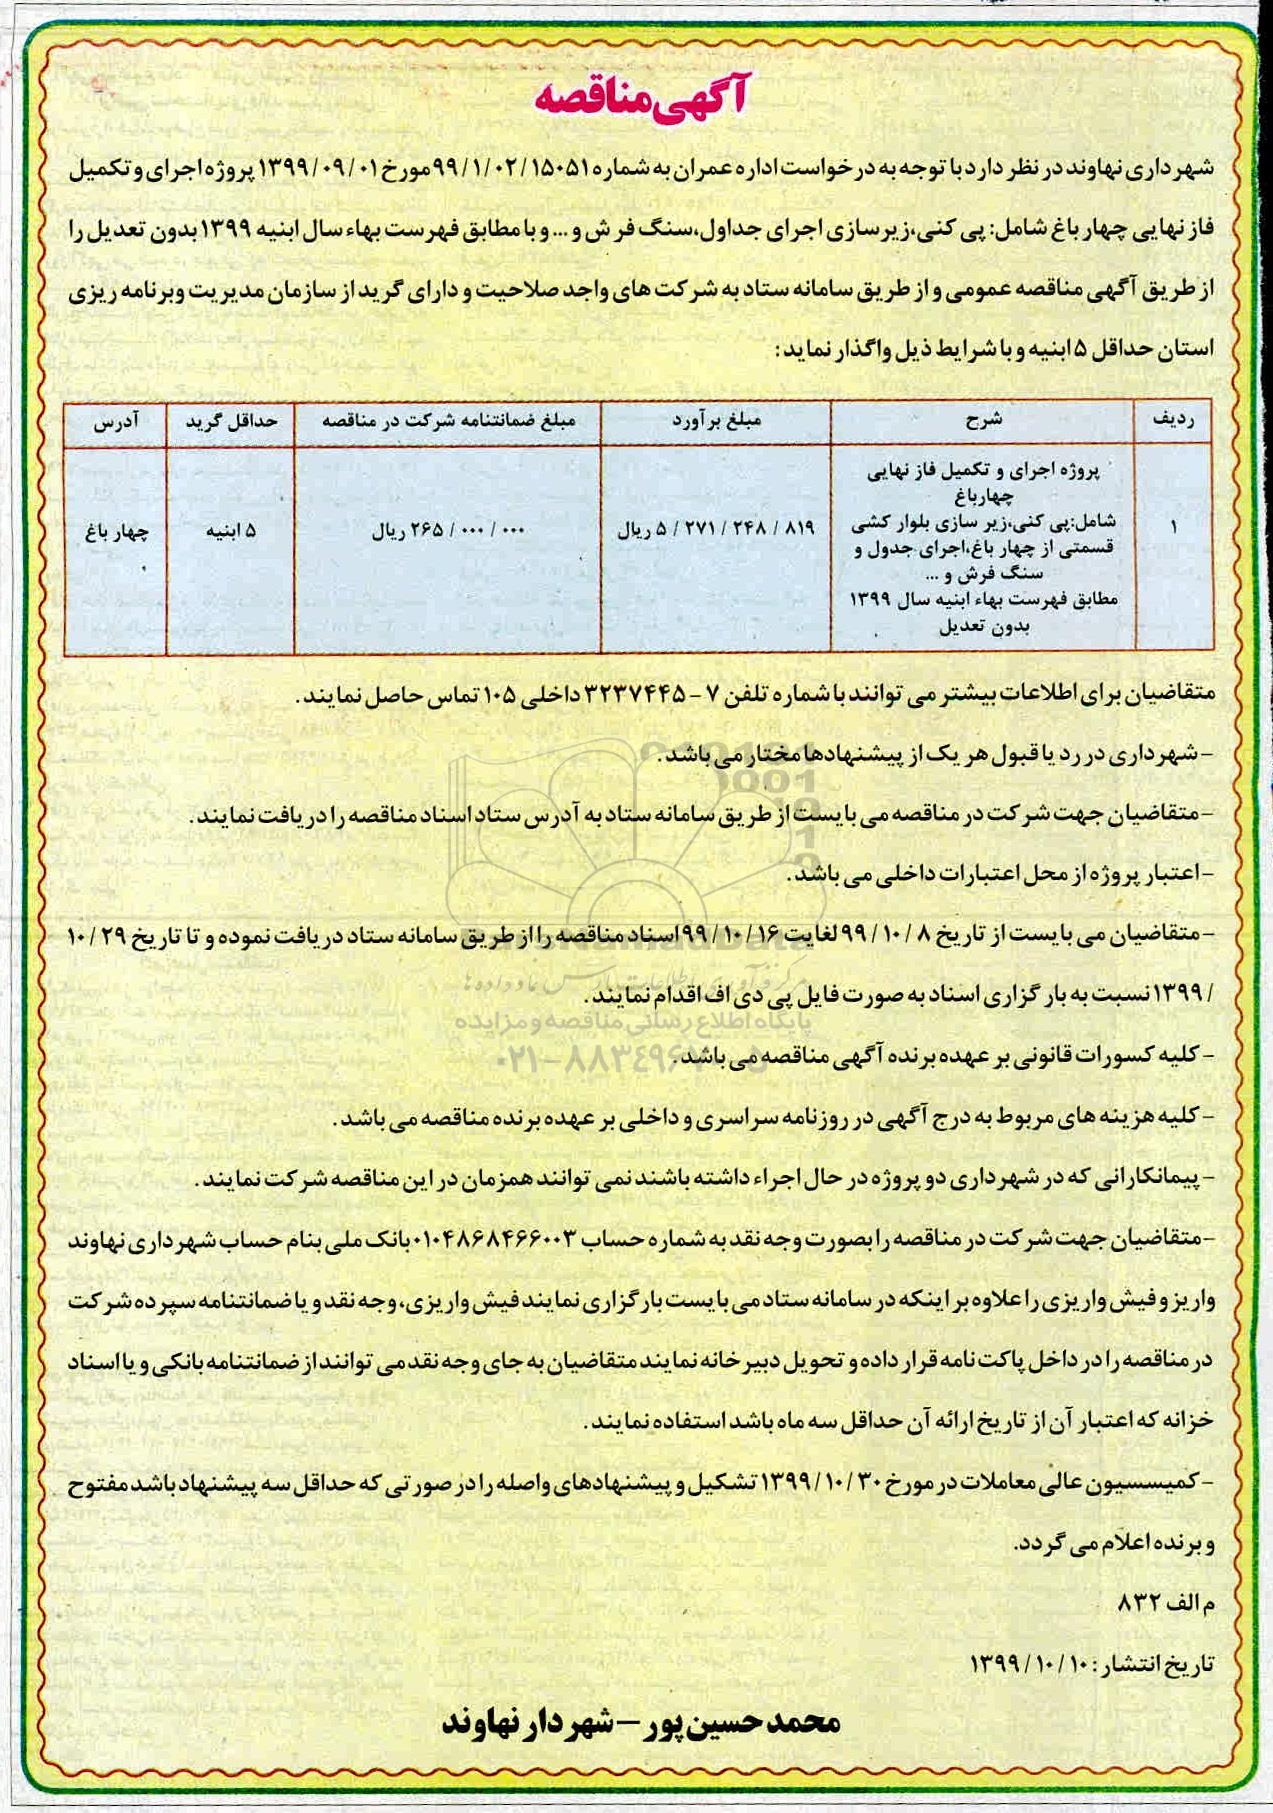 آگهی مناقصه
شهرداری نهاوند در نظر دارد با توجه به درخواست اداره عمران به شماره ۹۹/۱/۰۲/۱۵۰۵۱ مورخ ۱۳۹۹/۰۹/۰۱ پروژه اجرای و تکمیل
فاز نهایی چهار باغ شامل: پی کنی،زیرسازی اجرای جداول،سنگ فرش و ... و با مطابق فهرست بهاء سال ابنیه ۱۳۹۹ بدون تعدیل را
از طریق آگهی مناقصه عمومی و از طریق سامانه ستاد به شرکت های واجد صلاحیت و دارای گرید از سازمان مدیریت وبرنامه ریزی
استان حداقل ۵ ابنیه و با شرایط ذیل واگذار نماید:
ردیف شرح مبلغ برآورد مبلغ ضمانتنامه شرکت در مناقصه حداقل گرید آدرس
پروژه اجرای و تکمیل فاز نهایی
چهارباغ
شامل:پی کنی،زیر سازی بلوار کشی
۱ قسمتی از چهار باغ،اجرای جدول و ۸۱۹ / ۲۴۸ / ۲۷۱ / ۵ ریال ۰۰۰ / ۰۰۰ / ۲۶۵ ریال ۵ ابنیه چهار باغ
سنگ فرش و ...
مطابق فهرست بهاء ابنیه سال ۱۳۹۹
بدون تعدیل
متقاضیان برای اطلاعات بیشتر می توانند با شماره تلفن ۷ - ۳۲۳۷۴۴۵ داخلی ۱۰۵ تماس حاصل نمایند.
- شهرداری در رد یا قبول هر یک از پیشنهادها مختار می باشد.
- متقاضیان جهت شرکت در مناقصه می بایست از طریق سامانه ستاد به آدرس ستاد اسناد مناقصه را دریافت نمایند.
- اعتبار پروژه از محل اعتبارات داخلی می باشد.
- متقاضیان می بایست از تاریخ ۸ / ۱۰ / ۹۹ لغایت ۱۶ / ۱۰ / ۹۹ اسناد مناقصه را از طریق سامانه ستاد دریافت نموده و تا تاریخ ۲۹ / ۱۰
/ ۱۳۹۹ نسبت به بارگزاری اسناد به صورت فایل پی دی اف اقدام نمایند.
پایگاه اطلاع رسانی مناقصه و مزایده
- کلیه کسورات قانونی بر عهده برنده آگهی مناقصه می باشد.
- کلیه هزینه های مربوط به درج آگهی در روزنامه سراسری و داخلی بر عهده برنده مناقصه می باشد.
- پیمانکارانی که در شهرداری دو پروژه در حال اجراء داشته باشند نمی توانند همزمان در این مناقصه شرکت نمایند.
- متقاضیان جهت شرکت در مناقصه را بصورت وجه نقد به شماره حساب ۰۱۰۴۸۶۸۴۶۶۰۰۳ بانک ملی بنام حساب شهرداری نهاوند
واریز و فیش واریزی را علاوه بر اینکه در سامانه ستاد می بایست بارگزاری نمایند فیش واریزی، وجه نقد و یا ضمانتنامه سپرده شرکت
در مناقصه را در داخل پاکت نامه قرار داده و تحویل دبیرخانه نمایند متقاضیان به جای وجه نقد می توانند از ضمانتنامه بانکی و یا اسناد
خزانه که اعتبار آن از تاریخ ارائه آن حداقل سه ماه باشد استفاده نمایند.
- کمیسیون عالی معاملات در مورخ ۳۰ / ۱۰ / ۱۳۹۹ تشکیل و پیشنهادهای واصله را در صورتی که حداقل سه پیشنهاد باشد مفتوح
و برنده اعلام می گردد.
م الف ۸۳۲
تاریخ انتشار: ۱۰ / ۱۰ / ۱۳۹۹
محمد حسین پور – شهردار نهاوند